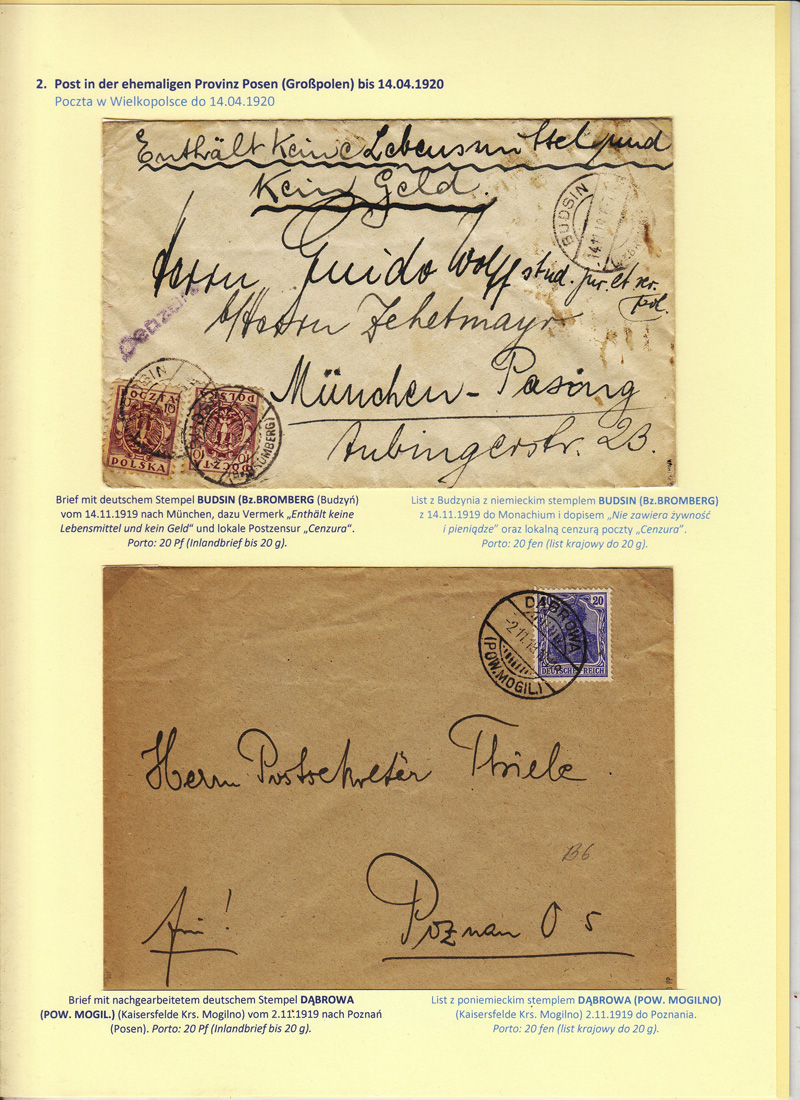 2. Post in der ehemaligen Provinz Posen (Großpolen) bis 14.04.1920
Poczta w Wielkopolsce do 14.04.1920
Enthält Keine Lebensmittel und
Kein Geld.
BUDSIN
14.11.19
Herrn Guido Wolff stud. jur. et rer.
pol.
b/Herrn Zehetmayr
Cenzura
München - Pasing
Aubingerstr. 23.
BUDSIN
POCZTA
10
POLSKA
POCZTA
10
POLSKA
BROMBERG)
Brief mit deutschem Stempel BUDSIN (Bz.BROMBERG (Budzyń)
vom 14.11.1919 nach München, dazu Vermerk „Enthält keine
Lebensmittel und kein Geld“ und lokale Postzensur „Cenzura“.
Porto: 20 Pf (Inlandbrief bis 20 g).
List z Budzynia z niemieckim stemplem BUDSIN (Bz.BROMBERG)
z 14.11.1919 do Monachium i dopisem „Nie zawiera żywność
i pieniądze” oraz lokalną cenzurą poczty „Cenzura”.
Porto: 20 fen (list krajowy do 20 g).
DĄBROWA
-2.11.19
(POW.MOGIL.)
20
DEUTSCHES REICH
Herrn Postsekretär Thiele.
B6
Poznan O 5
Brief mit nachgearbeitetem deutschem Stempel DĄBROWA
(POW. MOGIL.) (Kaisersfelde Krs. Mogilno) vom 2.11.1919 nach Poznań
(Posen). Porto: 20 Pf (Inlandbrief bis 20 g).
List z poniemieckim stemplem DĄBROWA (POW. MOGILNO)
(Kaisersfelde Krs. Mogilno) 2.11.1919 do Poznania.
Porto: 20 fen (list krajowy do 20 g).